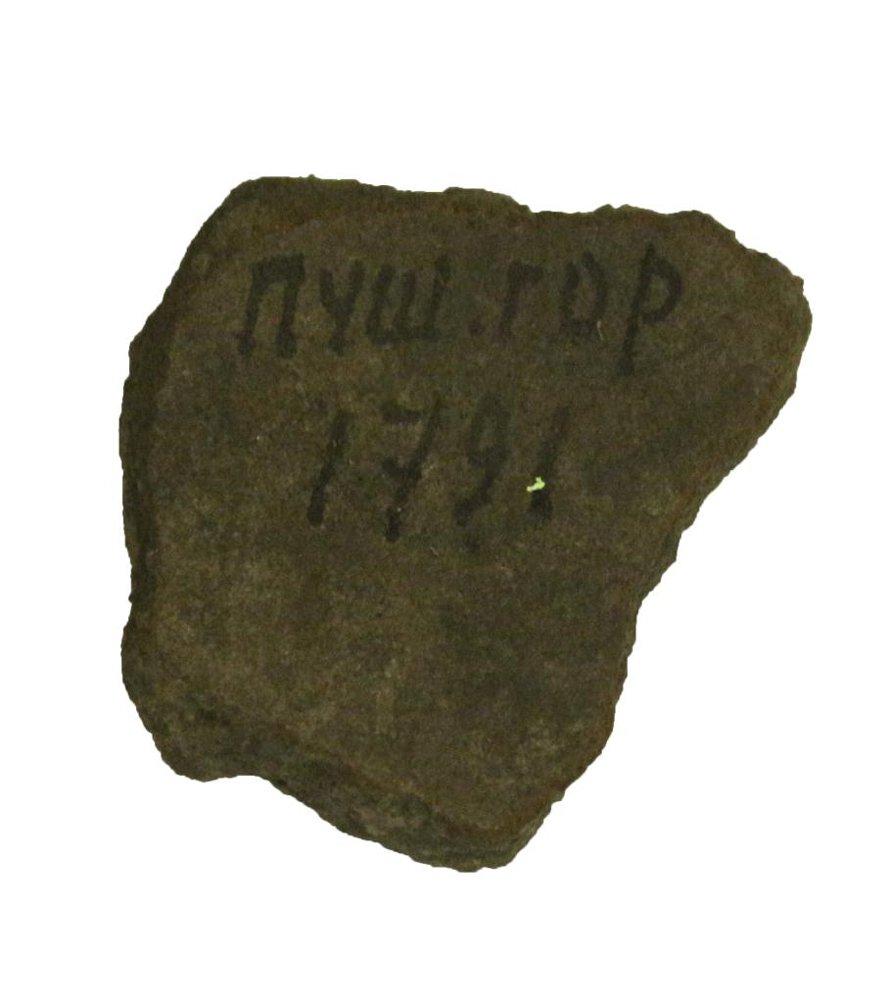 ПУШ.ГОР
1791